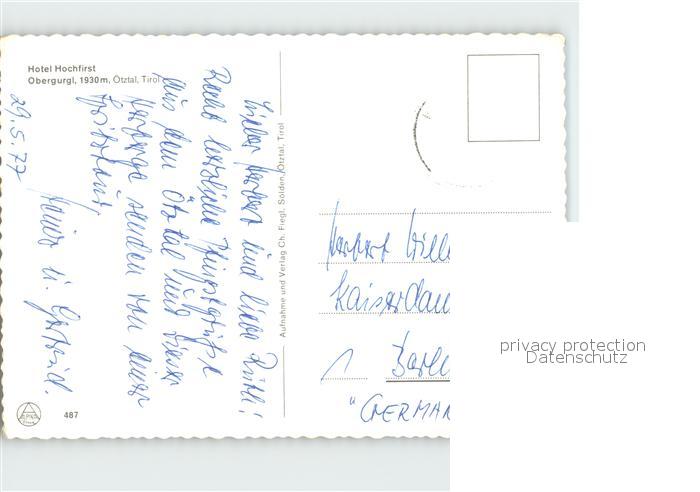 Hotel Hochfirst
Obergurgl, 1930 m, Ötztal, Tirol
29.5.77
Lieber Herbert und liebe
Recht herzliche Pfingstgrüße
aus dem Ötztal und
senden von einer
Heinz u. Gertrud.
Aufnahme und Verlag Ch. Fiegl, Sölden, Ötztal, Tirol
Herbert Wille
Kaiserdam
1 Berl
"GERMAN
487
privacy protection
Datenschutz